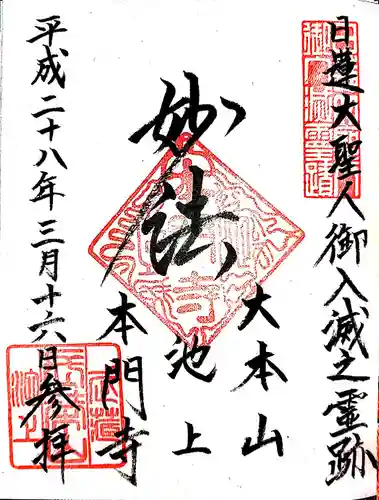 日蓮大聖人御入滅之霊跡
妙法
大本山
池上
本門寺
平成二十八年三月十六日参拝